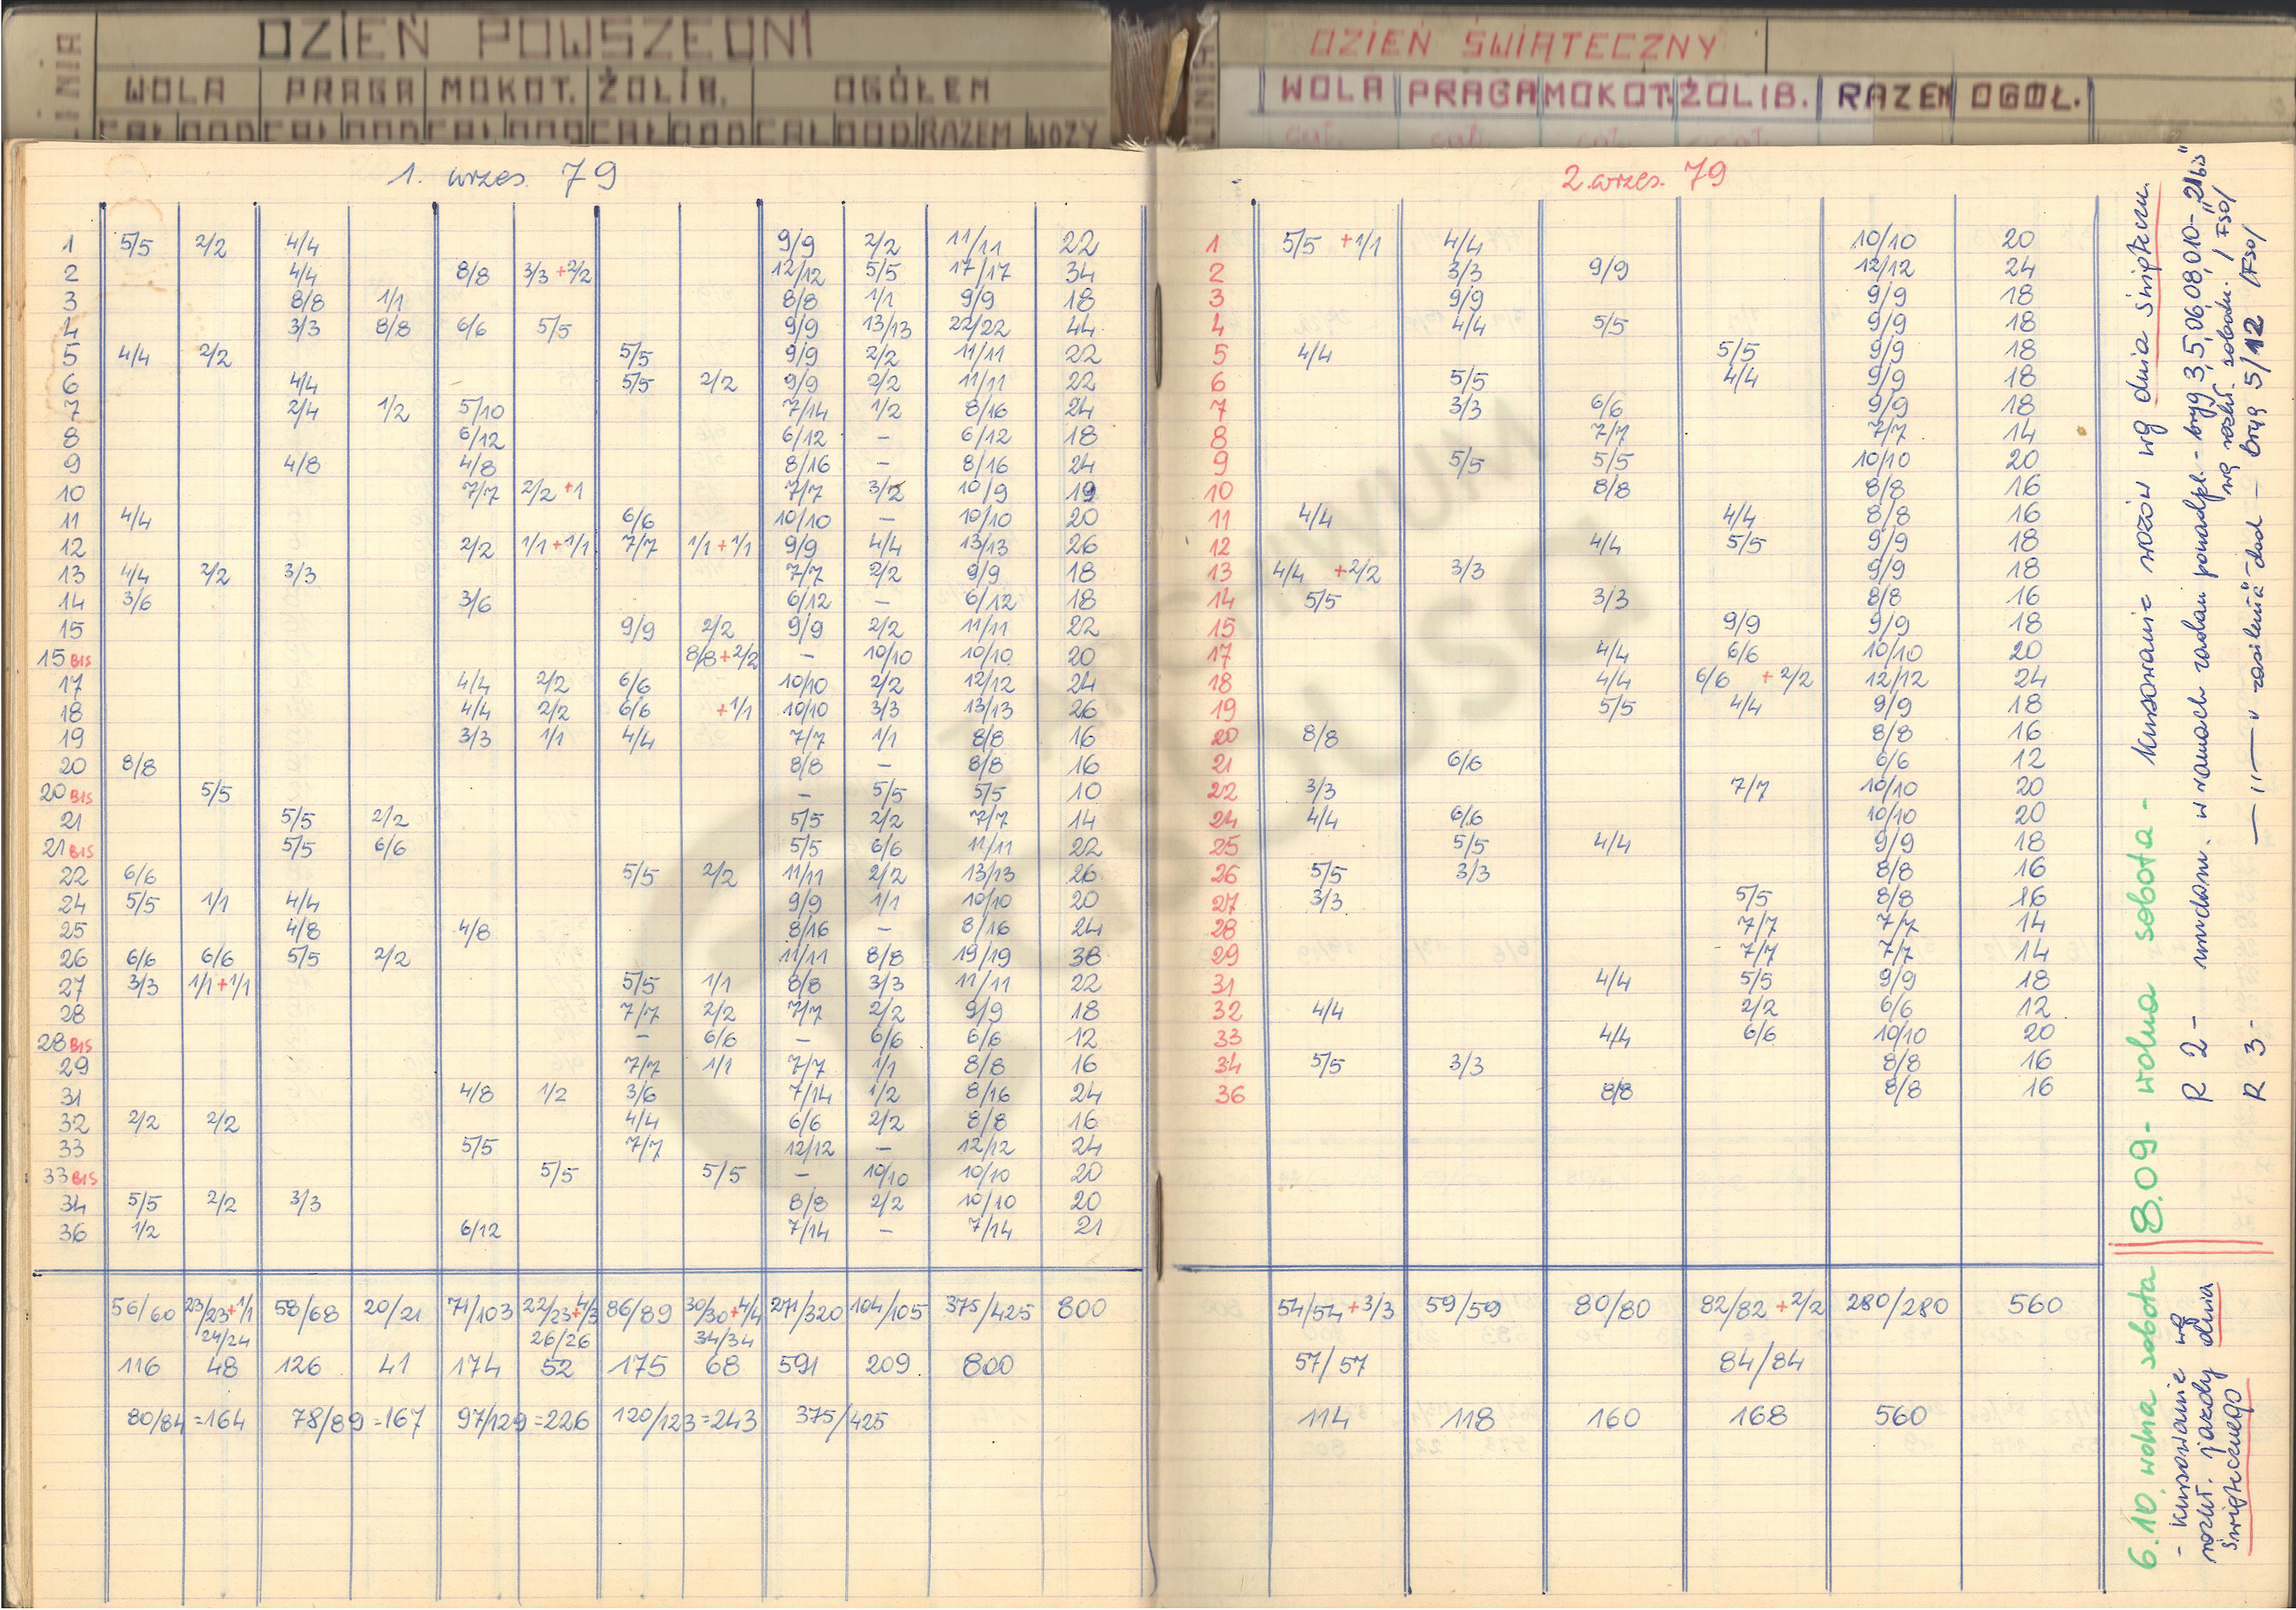 LINIA DZIEŃ POWSZEDNI
WOLA PRAGA MOKOT. ŻOLIB. OGÓŁEM
CAŁ DOD CAŁ DOD CAŁ DOD CAŁ DOD CAŁ DOD RAZEM WOZY
1. wrzes. 79
1 5/5 2/2 4/4 9/9 2/2 11/11 22
2 4/4 8/8 3/3 +2/2 12/12 5/5 17/17 34
3 8/8 1/1 8/8 1/1 9/9 18
4 3/3 8/8 6/6 5/5 9/9 13/13 22/22 44
5 4/4 2/2 5/5 9/9 2/2 11/11 22
6 4/4 5/5 2/2 9/9 2/2 11/11 22
7 2/4 1/2 5/10 7/14 1/2 8/16 24
8 6/12 6/12 – 6/12 18
9 4/8 4/8 8/16 – 8/16 24
10 7/7 2/2 +1 7/7 3/2 10/9 19
11 4/4 6/6 10/10 – 10/10 20
12 2/2 1/1 +1/1 7/7 1/1 +1/1 9/9 4/4 13/13 26
13 4/4 2/2 3/3 7/7 2/2 9/9 18
14 3/6 3/6 6/12 – 6/12 18
15 9/9 2/2 9/9 2/2 11/11 22
15 BIS 8/8 +2/2 – 10/10 10/10 20
17 4/4 2/2 6/6 10/10 2/2 12/12 24
18 4/4 2/2 6/6 +1/1 10/10 3/3 13/13 26
19 3/3 1/1 4/4 7/7 1/1 8/8 16
20 8/8 8/8 – 8/8 16
20 BIS 5/5 – 5/5 5/5 10
21 5/5 2/2 5/5 2/2 7/7 14
21 BIS 5/5 6/6 5/5 6/6 11/11 22
22 6/6 5/5 2/2 11/11 2/2 13/13 26
24 5/5 1/1 4/4 9/9 1/1 10/10 20
25 4/8 4/8 8/16 – 8/16 24
26 6/6 6/6 5/5 2/2 11/11 8/8 19/19 38
27 3/3 1/1 +1/1 5/5 1/1 8/8 3/3 11/11 22
28 7/7 2/2 7/7 2/2 9/9 18
28 BIS – 6/6 – 6/6 6/6 12
29 7/7 1/1 7/7 1/1 8/8 16
31 4/8 1/2 3/6 7/14 1/2 8/16 24
32 2/2 2/2 4/4 6/6 2/2 8/8 16
33 5/5 7/7 12/12 – 12/12 24
33 BIS 5/5 5/5 – 10/10 10/10 20
34 5/5 2/2 3/3 8/8 2/2 10/10 20
36 1/2 6/12 7/14 – 7/14 21
56/60 23/23+1/1 58/68 20/21 71/103 22/23+4/3 86/89 30/30+4/4 271/320 104/105 375/425 800
24/24 26/26 34/34
116 48 126 41 174 52 175 68 591 209 800
80/84 =164 78/89 =167 97/129 =226 120/123 =243 375/425
LINIA DZIEŃ ŚWIĄTECZNY
WOLA PRAGA MOKOT. ŻOLIB. RAZEM OGÓŁ.
cał. cał. cał. cał.
2. wrzes. 79
1 5/5 +1/1 4/4 10/10 20
2 3/3 9/9 12/12 24
3 9/9 9/9 18
4 4/4 5/5 9/9 18
5 4/4 5/5 9/9 18
6 5/5 4/4 9/9 18
7 3/3 6/6 9/9 18
8 7/7 7/7 14
9 5/5 5/5 10/10 20
10 8/8 8/8 16
11 4/4 4/4 8/8 16
12 4/4 5/5 9/9 18
13 4/4 +2/2 3/3 9/9 18
14 5/5 3/3 8/8 16
15 9/9 9/9 18
17 4/4 6/6 10/10 20
18 4/4 6/6 +2/2 12/12 24
19 5/5 4/4 9/9 18
20 8/8 8/8 16
21 6/6 6/6 12
22 3/3 7/7 10/10 20
24 4/4 6/6 10/10 20
25 5/5 4/4 9/9 18
26 5/5 3/3 8/8 16
27 3/3 5/5 8/8 16
28 7/7 7/7 14
29 7/7 7/7 14
31 4/4 5/5 9/9 18
32 4/4 2/2 6/6 12
33 4/4 6/6 10/10 20
34 5/5 3/3 8/8 16
36 8/8 8/8 16
54/54 +3/3 59/59 80/80 82/82 +2/2 280/280 560
57/57 84/84
114 118 160 168 560
6.10. wolna sobota
- kursowanie wg
rozkł. jazdy dnia
świątecznego
8.09 - wolna sobota - kursowanie wozów wg dnia świąteczn.
R 2 - w ramach zadań ponadpl. - bryg 3,5,06,08,010 - "21bis"
wg rozkł. sobotn. /FSO/
R 3 - — " — dod — bryg 5/12 /FSO/